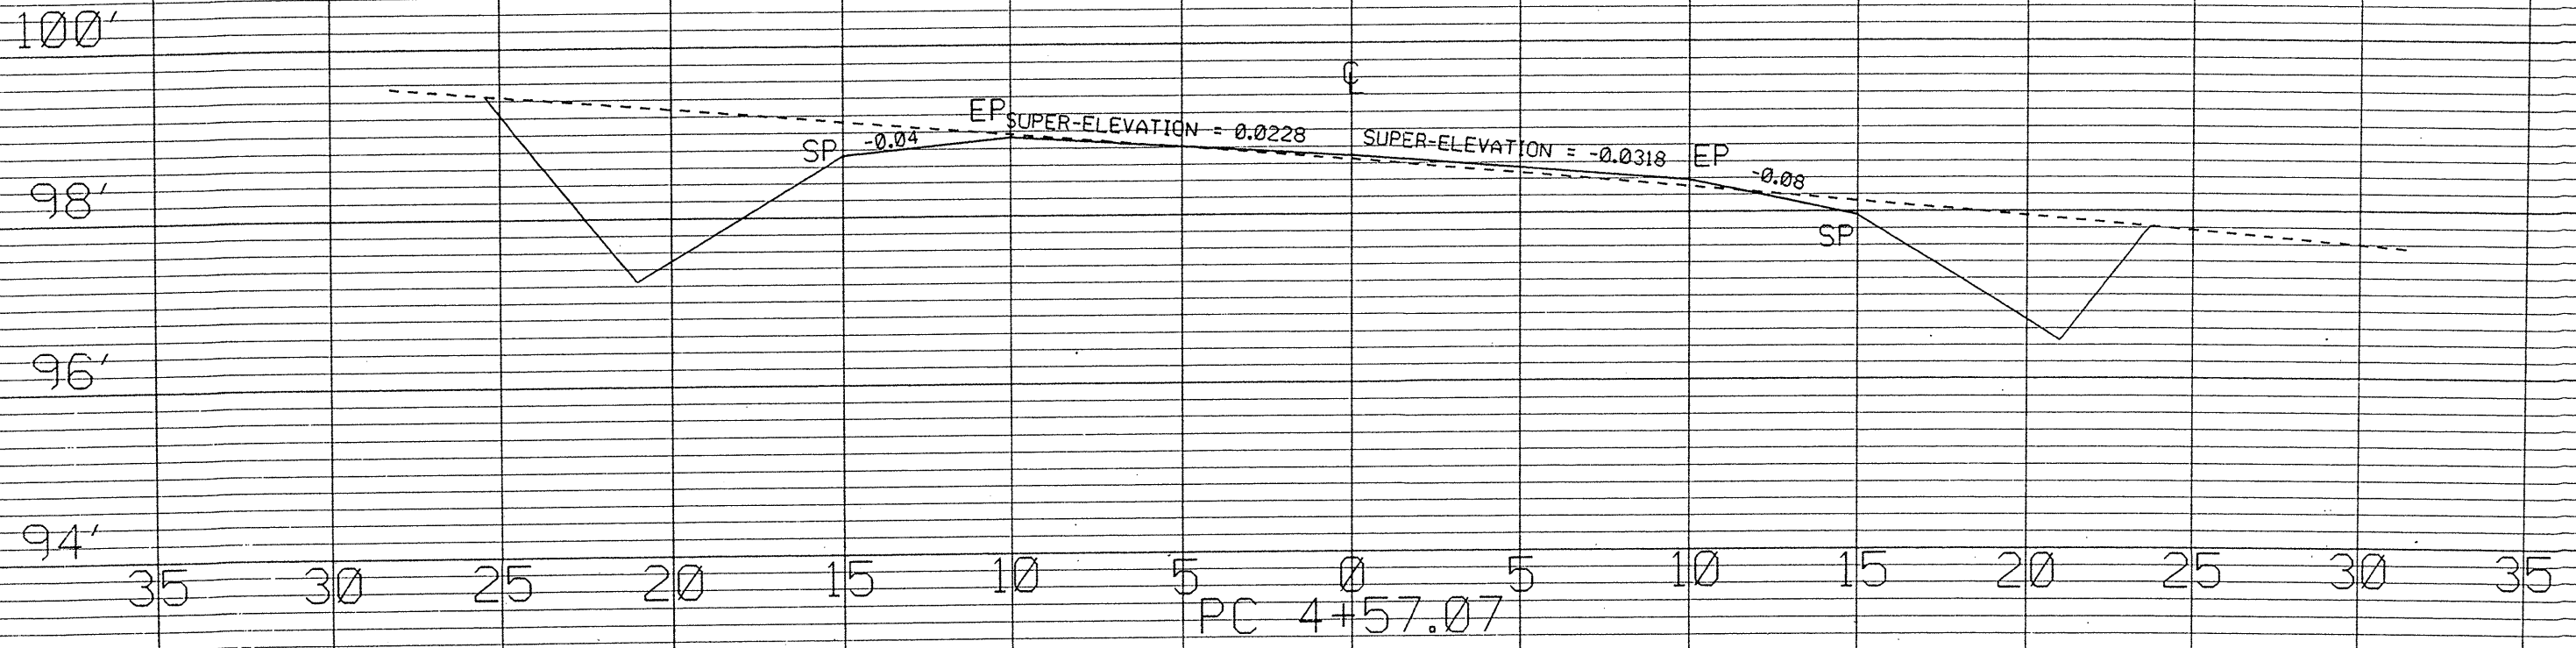 100'
℄
EP
SUPER-ELEVATION = 0.0228
SUPER-ELEVATION = -0.0318
EP
SP
-0.04
-0.08
98'
SP
96'
94'
35 30 25 20 15 10 5 0 5 10 15 20 25 30 35
PC 4+57.07